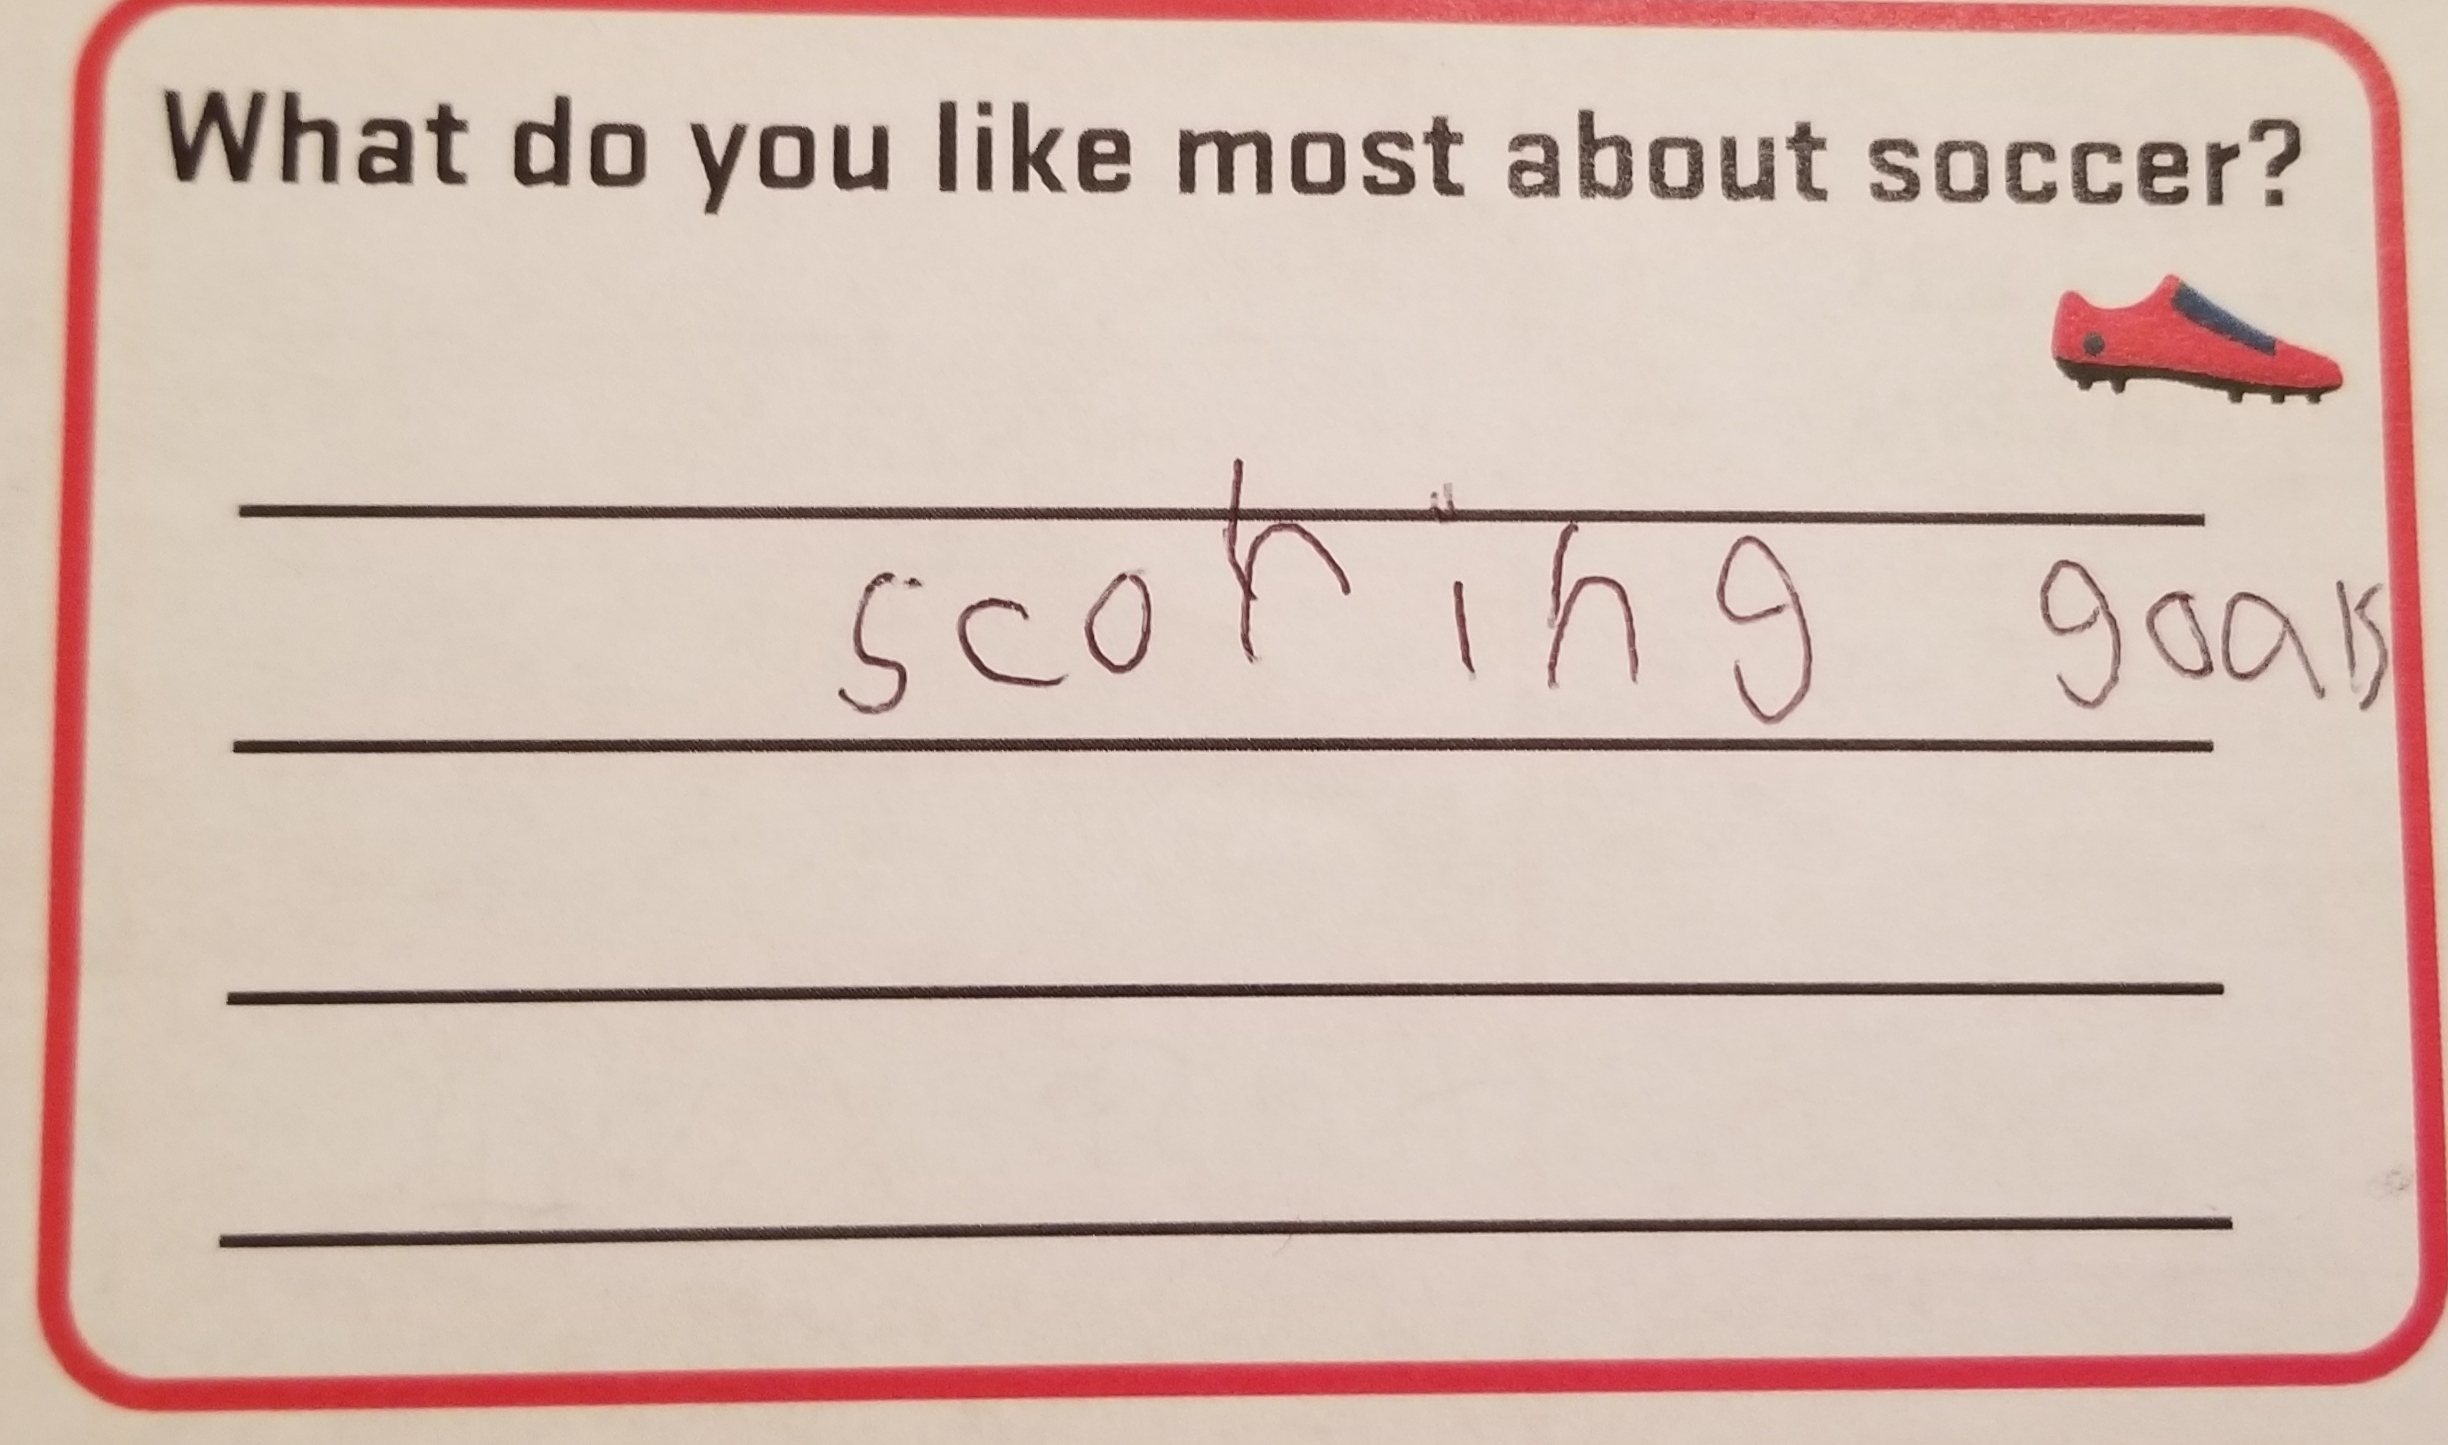 What do you like most about soccer?
scoring goals